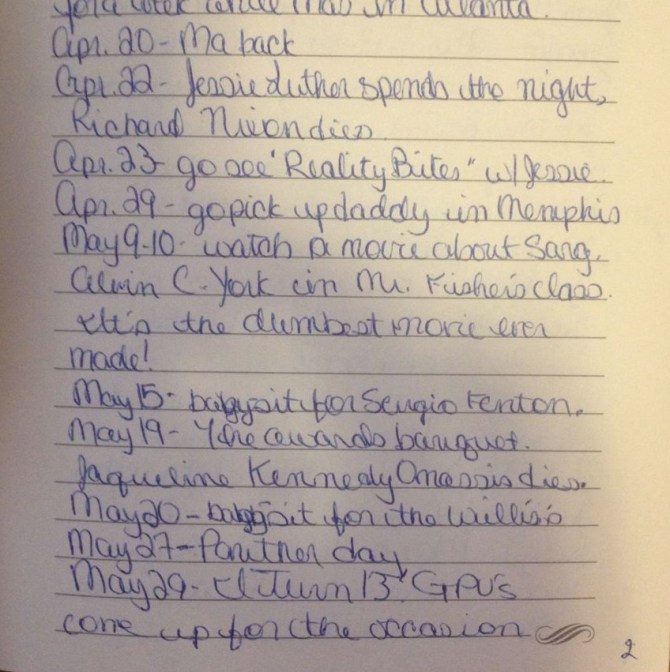 week while Ma's in Atlanta.
Apr. 20 - Ma back
Apr. 22 - Jessie Luther spends the night,
Richard Nixon dies.
Apr. 23 - go see "Reality Bites" w/ Jessie.
Apr. 29 - go pick up daddy in Memphis
May 9-10 - watch a movie about Sang.
Alvin C. York in Mr. Fisher's class.
It's the dumbest movie ever
made!
May 15 - babysit for Sergio Fenton.
May 19 - awards banquet.
Jaqueline Kennedy Onassis dies.
May 20 - babysit for the Willis's
May 27 - Panther day
May 29 - I Turn 13! GPU's
come up for the occasion
2